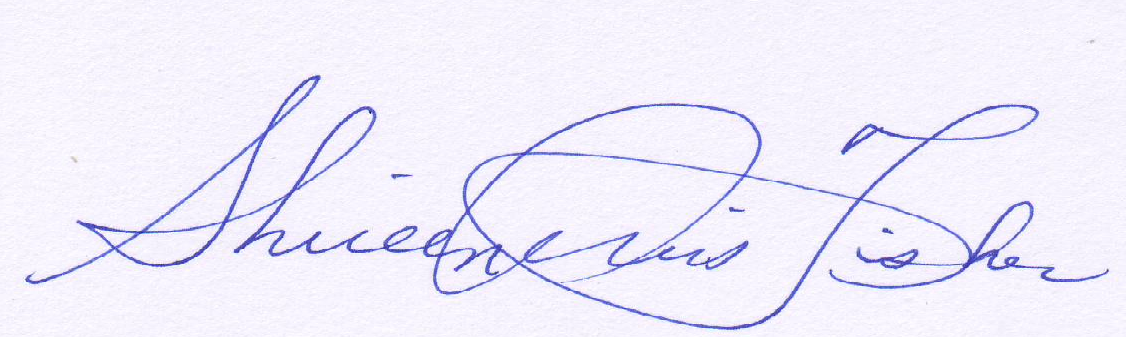 Shireen Avis Fisher